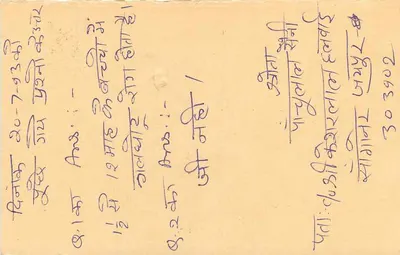 दिनांक 20-7-93 को
पुछे गये प्रश्नो के उत्तर
Q.1 का Ans: :-
1½ से 12 माह के बच्चो में
गलघोटू रोग होता है।
Q.2 का Ans: :-
जी नही ।
श्रोता
पांचुलाल सैनी
पता: c/o श्री केशरलाल हलवाई
सांगानेर जयपुर-
303902